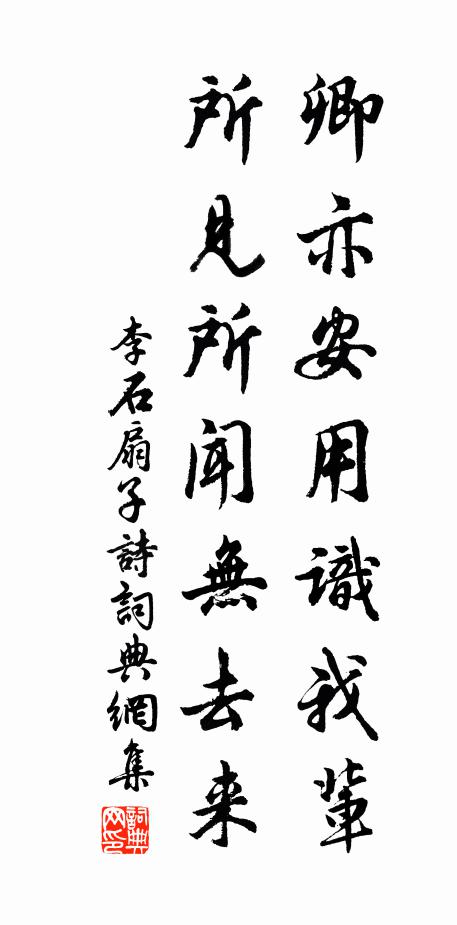 卿亦安用識我輩
所見所聞無去来
李石扇子詩詞典網集
詞典網印